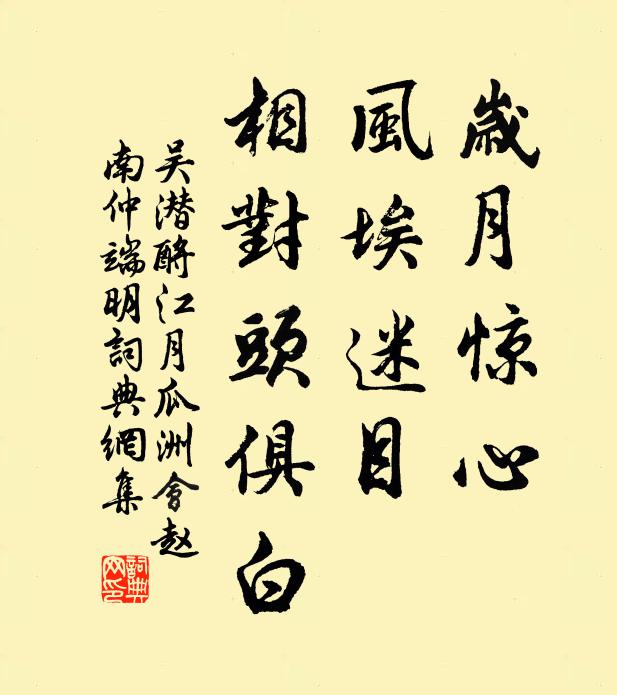 歳月惊心
風埃迷目
相對頭俱白
吴潜酹江月瓜洲會赵
南仲端明詞典網集
詞典
网印